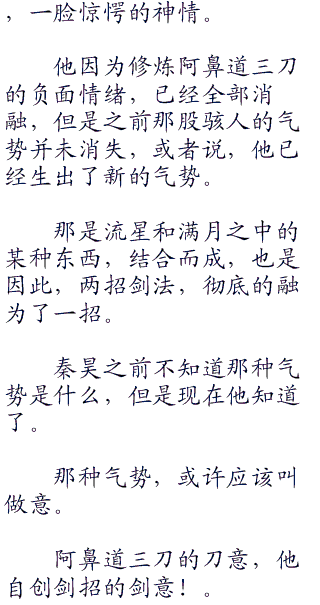 ，一脸惊愕的神情。
他因为修炼阿鼻道三刀
的负面情绪，已经全部消
融，但是之前那股骇人的气
势并未消失，或者说，他已
经生出了新的气势。
那是流星和满月之中的
某种东西，结合而成，也是
因此，两招剑法，彻底的融
为了一招。
秦昊之前不知道那种气
势是什么，但是现在他知道
了。
那种气势，或许应该叫
做意。
阿鼻道三刀的刀意，他
自创剑招的剑意！。